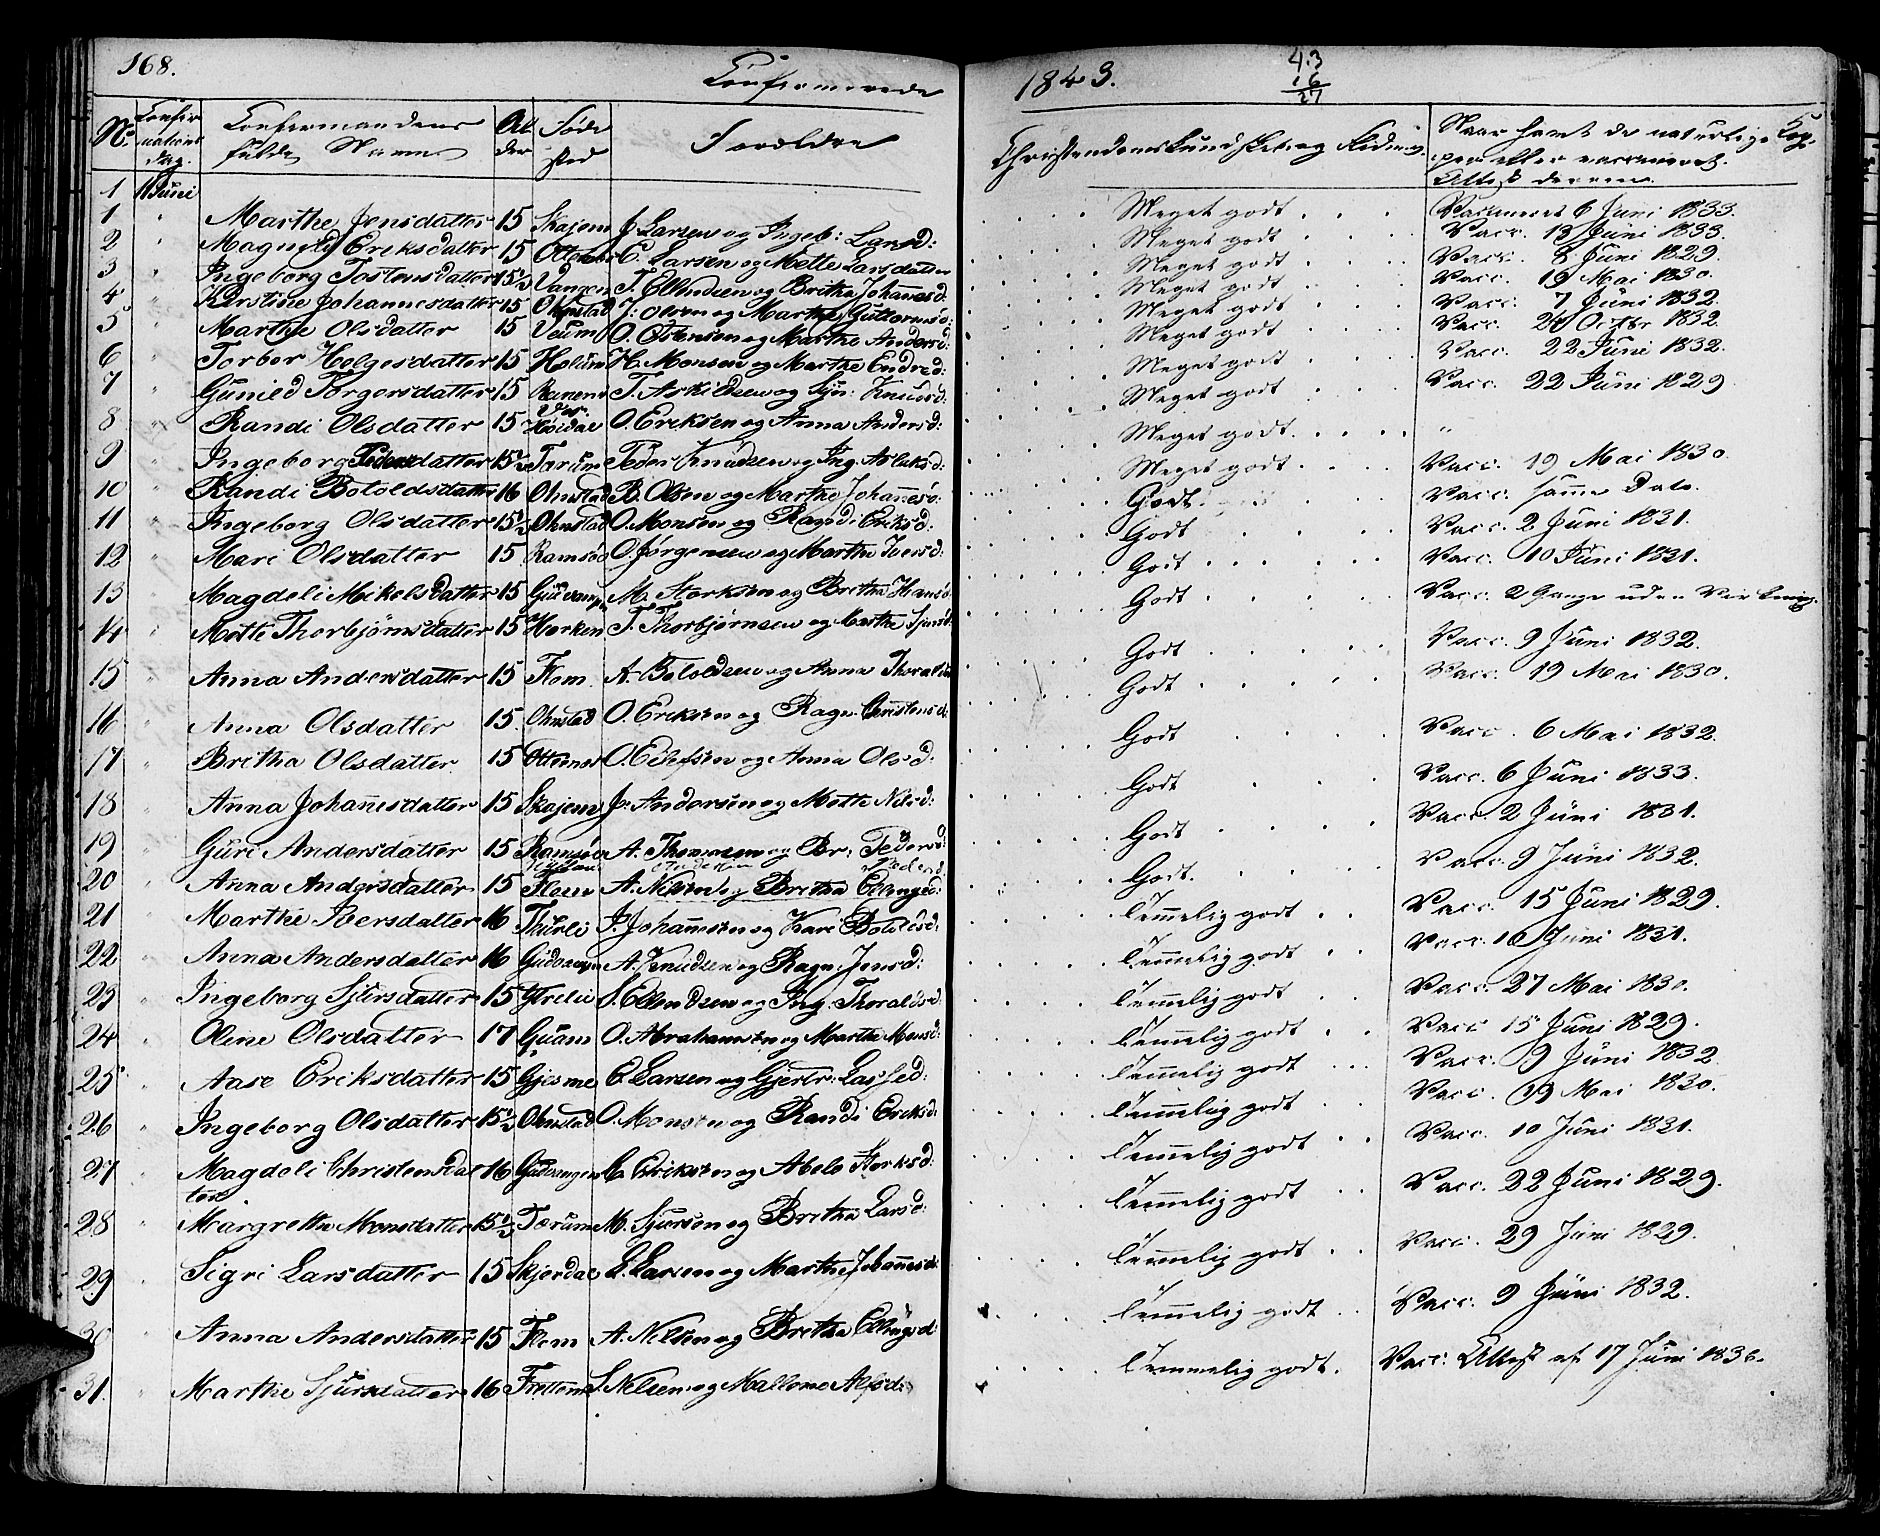 168.
Confirmerede
1843.
43
16
27
No.
Confir-
mations
Dag.
Confirmandens
fulde Navn
Al-
der
Føde
sted
Forældre
Christendomskundskab og Flid
Naar havt de naturlige Kop-
per eller vaccineret.
Attest derom
1 Juni
1 " Marthe Jensdatter 15 Skajem J. Larsen og Ingeb: Larsd: Meget godt Vaccineret 6 Juni 1833.
2 " Magnild Eriksdatter 15 Otternes E. Larsen og Mette Larsdatter Meget godt Vacc. 13 Juni 1833.
3 " Ingeborg Tostensdatter 15½ Vangen T. Ellendsen og Britha Johanesd: Meget godt Vacc. Juni 1829.
4 " Kirstine Johannesdatter 15 Ohnstad J: Olsen og Marthe Guttormsd: Meget godt Vacc. 19 Mai 1830.
5 " Marthe Olsdatter 15 Veum O. Ostensen og Marthe Andersd: Meget godt Vacc. 7 Juni 1832.
6 " Torbor Helgesdatter 15 Holum H. Monsen og Marthe Endred: Meget godt Vacc. 24 Octbr 1832.
7 " Gunild Torgersdatter 15 Ranem T. Askildsen og Syn: Knudsd: Meget godt Vacc. 22 Juni 1832.
8 " Randi Olsdatter 15 Høidal O. Eriksen og Anna Andersd: Meget godt Vacc. 22 Juni 1829
9 " Ingeborg Pedersdatter 15½ Tærum Peder Knudsen og Ing. Aslaksd: Meget godt. "
10 " Randi Botoldsdatter 16 Ohnstad B. Olsen og Marthe Johanesd: Meget godt Vacc. 19 Mai 1830
11 " Ingeborg Olsdatter 15½ Ohnstad O. Monsen og Randi Eriksd: Godt. Vacc. samme Dato.
12 " Mari Olsdatter 15 Ramsøe O. Jørgensen og Marthe Iversd: Godt Vacc. 2 Juni 1831.
13 " Magdeli Mikelsdatter 15 Gudvangen M. Storksen og Britha Hansd: Godt Vacc. 10 Juni 1831.
14 " Mette Thorbjørnsdatter 15 Horken T. Thorbjørnsen og Marthe Sjursd: Godt Vacc. 2 Gange uden Virkning.
15 " Anna Andersdatter 15 Flom A. Botoldsen og Anna Thoralds Godt Vacc. 9 Juni 1832.
16 " Anna Olsdatter 15. Ohnstad O. Eriksen og Ragn: Christensd: Godt Vacc. 19 Mai 1830.
17 " Britha Olsdatter 15 Otternes O. Ellefsen og Anna Olsd: Godt Vacc. 6 Mai 1832.
18 " Anna Johanesdatter 15 Skajem J: Andersen og Mette Nilsd: Godt Vacc. 6 Juni 1833.
19 " Guri Andersdatter 15 Ramsøen A. Thomasen og Br: Pedersd: Godt Vacc. 2 Juni 1831.
20 " Anna Andersdatter 15 Flom A. Nilsen og Britha Ellingsd: Godt. Vacc. 9 Juni 1832.
21 " Marthe Iversdatter 16 Thurli I. Johannesen og Kari Botoldsd: Temmelig godt Vacc. 15 Juni 1829.
22 " Anna Andersdatter 16 Gudvangen A. Knudsen og Ragn: Jensd: Temmelig godt Vacc. 10 Juni 1831.
23 " Ingeborg Sjursdatter 15 S. Ellendsen og Ing. Thoraldsd Temmelig godt Vacc. 27 Mai 1830.
24 " Oline Olsdatter 17 Guam O. Abrahamsen og Marthe Monsd: Temmelig godt Vacc 15 Juni 1829.
25 " Aase Eriksdatter 15 Gjesme E. Larsen og Gjertr: Lassed: Temmelig godt Vacc. 9 Juni 1832
26 " Ingeborg Olsdatter 15½ Ohnstad O. Monsen og Randi Eriksd: Temmelig godt Vacc. 19 Mai 1830.
27 " Magdeli Christensdat 16 Gudvangen C. Eriksen og Abelo Storksd: Temmelig godt Vacc. 10 Juni 1831.
ter
28 " Margrethe Monsdatter 15½ Tærum M. Sjursen og Britha Larsd: Temmelig godt Vacc. 22 Juni 1829.
29 " Sigri Larsdatter 15 Skjerdal L. Larsen og Marthe Johanesd: Temmelig godt Vacc. 29 Juni 1829.
30 " Anna Andersdatter 15 Flom A. Nilsen og Britha Ellingsd: Temmelig godt Vacc. 9 Juni 1832.
31. " Marthe Sjursdatter 16 Frettem S. Nilsen og Mallene Alfsd: Temmelig godt. Vacc. Attest af 17 Juni 1836.